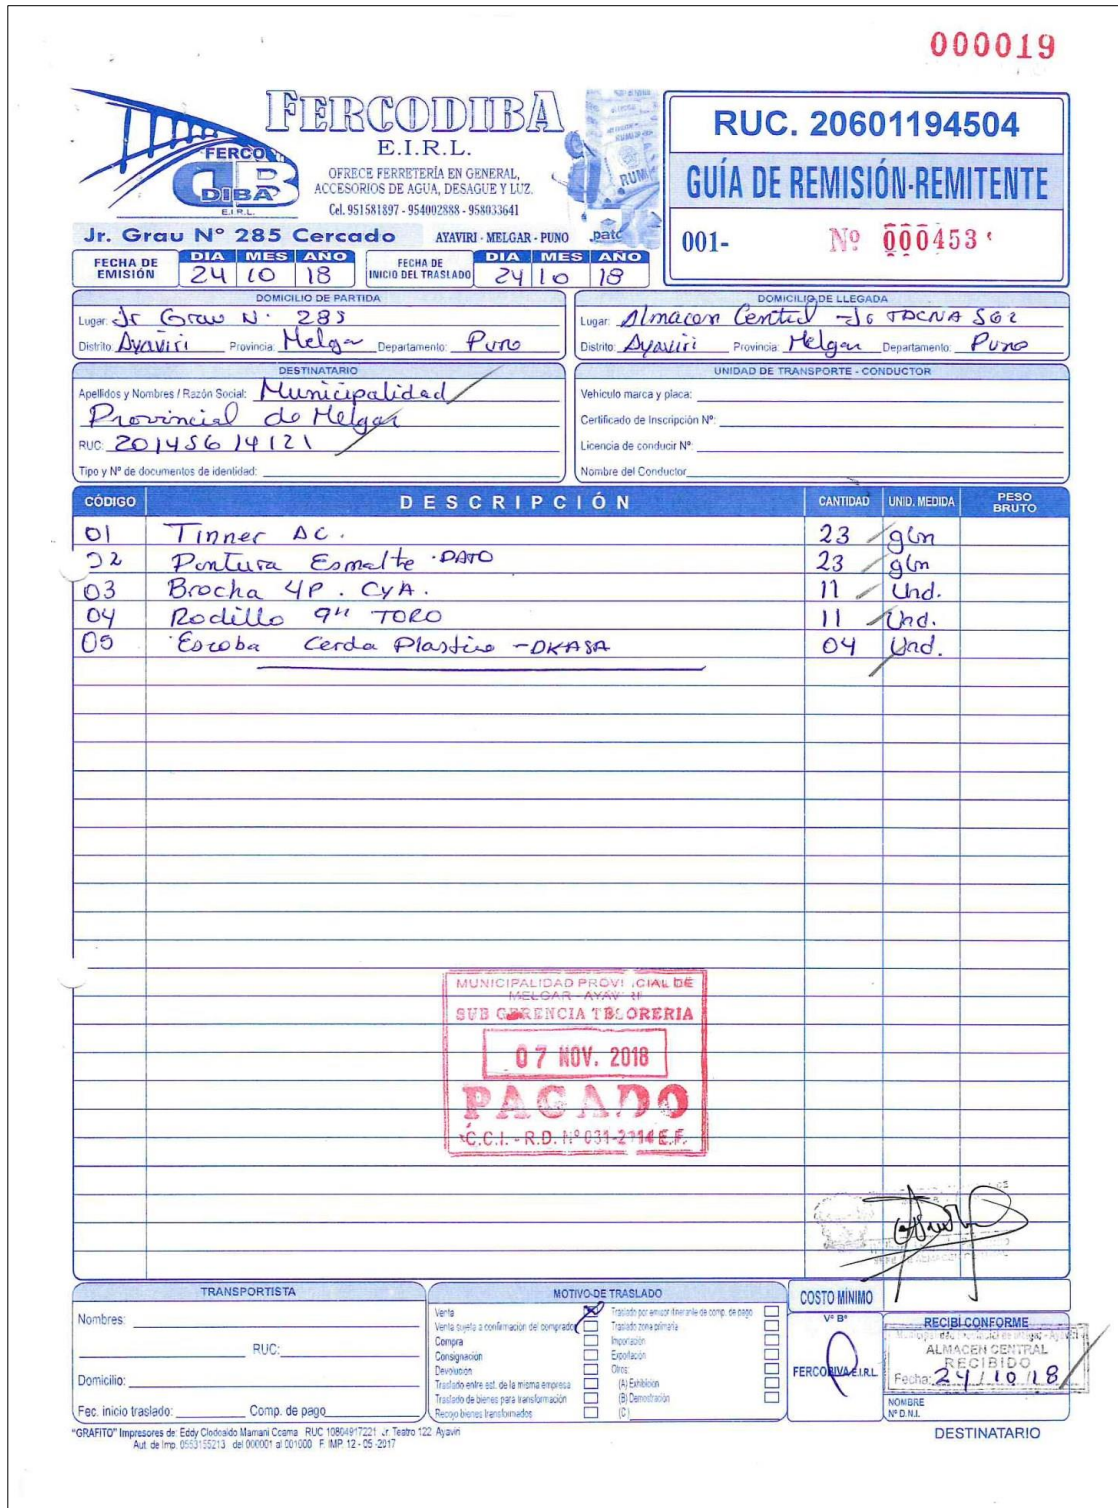 000019
FERCODIBA
E.I.R.L.
OFRECE FERRETERÍA EN GENERAL,
ACCESORIOS DE AGUA, DESAGUE Y LUZ.
Cel. 951581897 - 954002888 - 958033641
FERCO
DIBA
E.I.R.L.
RUM
pato
Jr. Grau N° 285 Cercado AYAVIRI - MELGAR - PUNO
RUC. 20601194504
GUÍA DE REMISIÓN-REMITENTE
001- Nº 000453
FECHA DE EMISIÓN DIA MES AÑO 24 10 18
FECHA DE INICIO DEL TRASLADO DIA MES AÑO 24 10 18
DOMICILIO DE PARTIDA
Lugar: Jr Grau N. 285
Distrito: Ayaviri Provincia: Melgar Departamento: Puno
DOMICILIO DE LLEGADA
Lugar: Almacen Central - Jr TACNA 562
Distrito: Ayaviri Provincia: Melgar Departamento: Puno
DESTINATARIO
Apellidos y Nombres / Razón Social: Municipalidad
Provincial de Melgar
RUC: 20145614121
Tipo y Nº de documentos de identidad:
UNIDAD DE TRANSPORTE - CONDUCTOR
Vehículo marca y placa:
Certificado de Inscripción Nº:
Licencia de conducir Nº:
Nombre del Conductor
CÓDIGO DESCRIPCIÓN CANTIDAD UNID. MEDIDA PESO BRUTO
01 Tinner AC. 23 gln
02 Pintura Esmalte PATO 23 gln
03 Brocha 4P. CyA. 11 Und.
04 Rodillo 9" TORO 11 Und.
05 Escoba Cerda Plastico - DKASA 04 Und.
MUNICIPALIDAD PROVINCIAL DE
MELGAR - AYAVIRI
SUB GERENCIA TESORERIA
07 NOV. 2018
PAGADO
C.C.I. - R.D. Nº 031-2014 E.F.
TRANSPORTISTA
Nombres:
RUC:
Domicilio:
Fec. inicio traslado: Comp. de pago
MOTIVO DE TRASLADO
Venta
Venta sujeta a confirmación del comprador
Compra
Consignación
Devolución
Traslado entre est. de la misma empresa
Traslado de bienes para transformación
Recojo bienes transformados
Traslado por emisor itinerante de comp. de pago
Traslado zona primaria
Importación
Exportación
Otros:
(A) Exhibición
(B) Demostración
(C)
COSTO MÍNIMO
V° B°
FERCODIVA E.I.R.L.
RECIBÍ CONFORME
ALMACEN CENTRAL
RECIBIDO
Fecha: 24/10/18
NOMBRE
Nº D.N.I.
"GRAFITO" Impresores de: Eddy Clodoaldo Mamani Ccama RUC 10804917221 Jr. Teatro 122 Ayaviri
Aut. de Imp. 0553155213 del 000001 al 001000 F. IMP. 12 - 05 -2017
DESTINATARIO